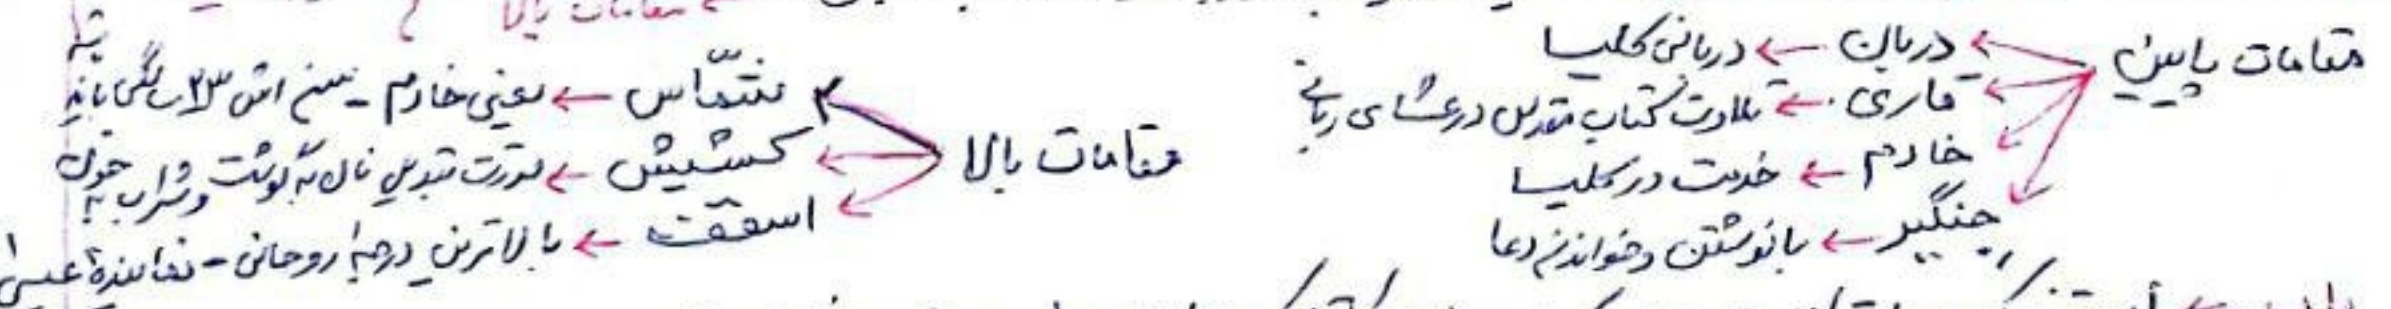 مقامات بالا
مقامات پایین
دربان ← دربانی کلیسا
قاری ← تلاوت کتاب مقدس در عشای ربانی
خادم ← خدمت در کلیسا
جنگیر ← با نوشتن و خواندن دعا
مقامات بالا
شمّاس ← یعنی خادم - سن اش ۲۳ سالگی باید
کشیش ← قدرت تبدیل نان به گوشت و شراب به خون
اسقف ← بالاترین درجهٔ روحانی - نمایندهٔ عیسی